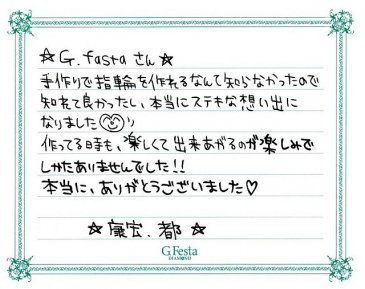 ☆G.fastaさん☆
手作りで指輪を作れるなんて知らなかったので
知れて良かったし、本当にステキな想い出に
なりました
作ってる時も、楽しくて出来あがるのが楽しみで
しかたありませんでした!!
本当に、ありがとうございました♡
☆康宏、都☆
G.Festa
DIAMOND